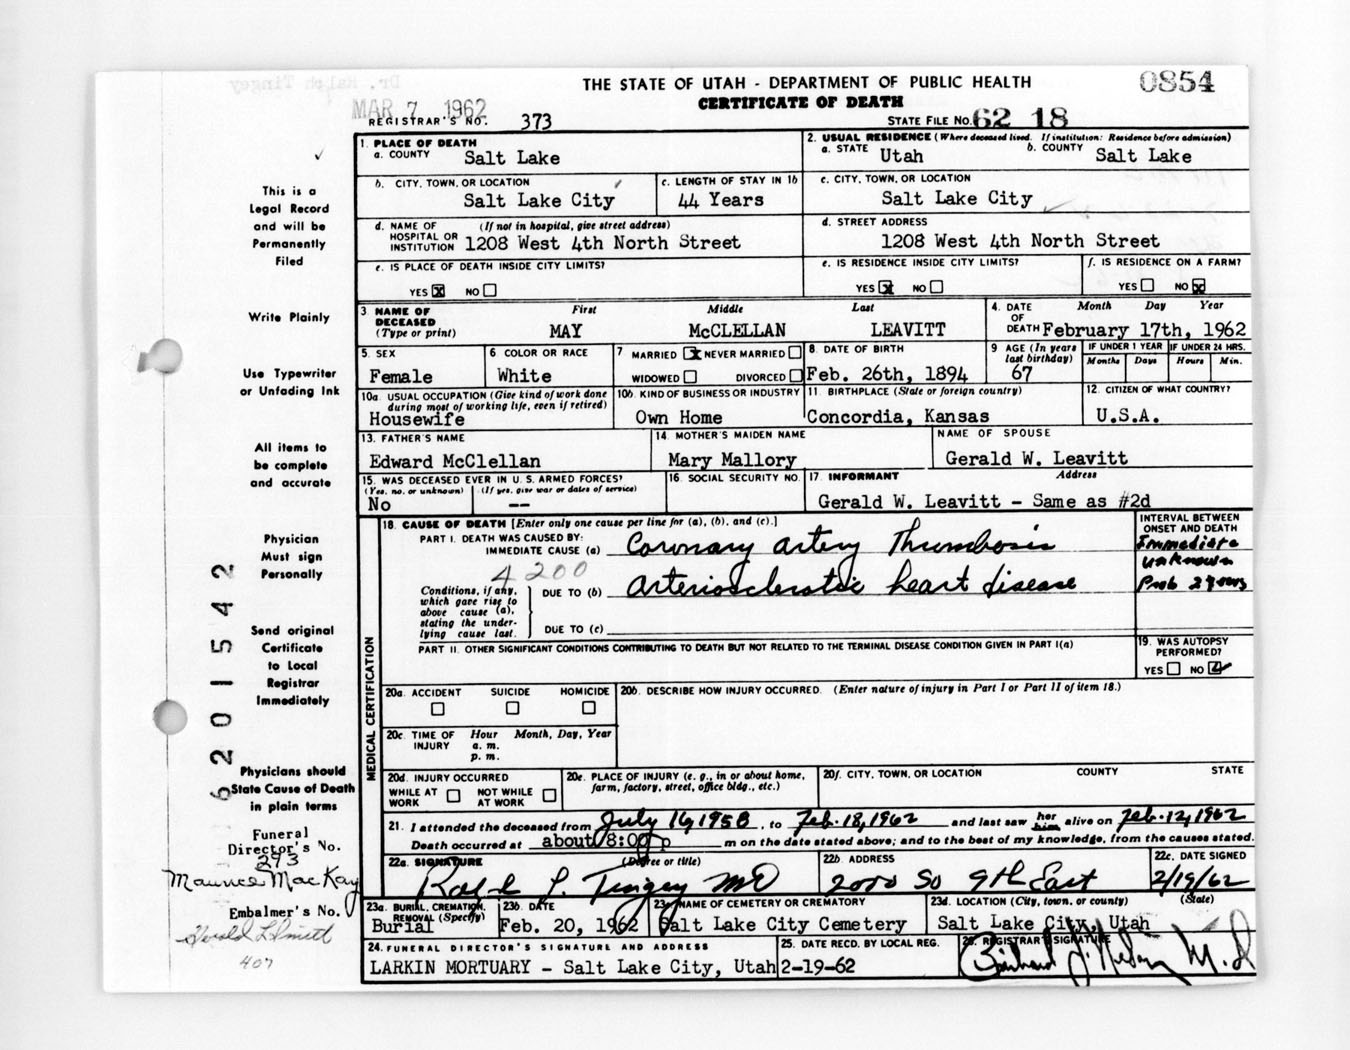 Dr. Ralph Tingey
THE STATE OF UTAH - DEPARTMENT OF PUBLIC HEALTH
0854
MAR 7 1962
CERTIFICATE OF DEATH
REGISTRAR'S NO. 373
STATE FILE NO. 62 18
1. PLACE OF DEATH
a. COUNTY Salt Lake
2. USUAL RESIDENCE (Where deceased lived. If institution: Residence before admission)
a. STATE Utah b. COUNTY Salt Lake
b. CITY, TOWN, OR LOCATION Salt Lake City
c. LENGTH OF STAY IN 1b 44 Years
c. CITY, TOWN, OR LOCATION Salt Lake City
d. NAME OF HOSPITAL OR INSTITUTION (If not in hospital, give street address) 1208 West 4th North Street
d. STREET ADDRESS 1208 West 4th North Street
e. IS PLACE OF DEATH INSIDE CITY LIMITS?
YES X NO
e. IS RESIDENCE INSIDE CITY LIMITS?
YES X NO
f. IS RESIDENCE ON A FARM?
YES NO X
3. NAME OF DECEASED (Type or print)
First Middle Last
MAY McCLELLAN LEAVITT
4. DATE OF DEATH Month Day Year
February 17th, 1962
5. SEX Female
6. COLOR OR RACE White
7. MARRIED X NEVER MARRIED
WIDOWED DIVORCED
8. DATE OF BIRTH Feb. 26th, 1894
9. AGE (In years last birthday) 67
IF UNDER 1 YEAR Months Days
IF UNDER 24 HRS. Hours Min.
10a. USUAL OCCUPATION (Give kind of work done during most of working life, even if retired) Housewife
10b. KIND OF BUSINESS OR INDUSTRY Own Home
11. BIRTHPLACE (State or foreign country) Concordia, Kansas
12. CITIZEN OF WHAT COUNTRY? U.S.A.
13. FATHER'S NAME Edward McClellan
14. MOTHER'S MAIDEN NAME Mary Mallory
NAME OF SPOUSE Gerald W. Leavitt
15. WAS DECEASED EVER IN U.S. ARMED FORCES? (Yes, no, or unknown) (If yes, give war or dates of service)
No --
16. SOCIAL SECURITY NO.
17. INFORMANT Address
Gerald W. Leavitt - Same as #2d
18. CAUSE OF DEATH [Enter only one cause per line for (a), (b), and (c).]
PART I. DEATH WAS CAUSED BY:
IMMEDIATE CAUSE (a) Coronary artery Thrombosis
4200
Conditions, if any, which gave rise to above cause (a), stating the underlying cause last.
DUE TO (b) Arteriosclerotic heart disease
DUE TO (c)
INTERVAL BETWEEN ONSET AND DEATH
Immediate
unknown
Prob 2 years
PART II. OTHER SIGNIFICANT CONDITIONS CONTRIBUTING TO DEATH BUT NOT RELATED TO THE TERMINAL DISEASE CONDITION GIVEN IN PART I(a)
19. WAS AUTOPSY PERFORMED?
YES NO
MEDICAL CERTIFICATION
20a. ACCIDENT SUICIDE HOMICIDE
20b. DESCRIBE HOW INJURY OCCURRED. (Enter nature of injury in Part I or Part II of item 18.)
20c. TIME OF INJURY Hour Month, Day, Year
a. m.
p. m.
20d. INJURY OCCURRED
WHILE AT WORK NOT WHILE AT WORK
20e. PLACE OF INJURY (e. g., in or about home, farm, factory, street, office bldg., etc.)
20f. CITY, TOWN, OR LOCATION COUNTY STATE
21. I attended the deceased from July 16, 1958, to Feb. 18, 1962 and last saw her him alive on Feb. 12, 1962
Death occurred at about 8:00 p m on the date stated above; and to the best of my knowledge, from the causes stated.
22a. SIGNATURE (Degree or title)
Ralph L. Tingey MD
22b. ADDRESS 2000 So 9th East
22c. DATE SIGNED 2/19/62
23a. BURIAL, CREMATION, REMOVAL (Specify) Burial
23b. DATE Feb. 20, 1962
23c. NAME OF CEMETERY OR CREMATORY Salt Lake City Cemetery
23d. LOCATION (City, town, or county) (State)
Salt Lake City, Utah
24. FUNERAL DIRECTOR'S SIGNATURE AND ADDRESS
LARKIN MORTUARY - Salt Lake City, Utah
25. DATE RECD. BY LOCAL REG. 2-19-62
26. REGISTRAR'S SIGNATURE
M.D.
This is a
Legal Record
and will be
Permanently
Filed
Write Plainly
Use Typewriter
or Unfading Ink
All items to
be complete
and accurate
Physician
Must sign
Personally
Send original
Certificate
to Local
Registrar
Immediately
Physicians should
State Cause of Death
in plain terms
6201542
Funeral
Director's No.
293
Maurice MacKay
Embalmer's No.
407